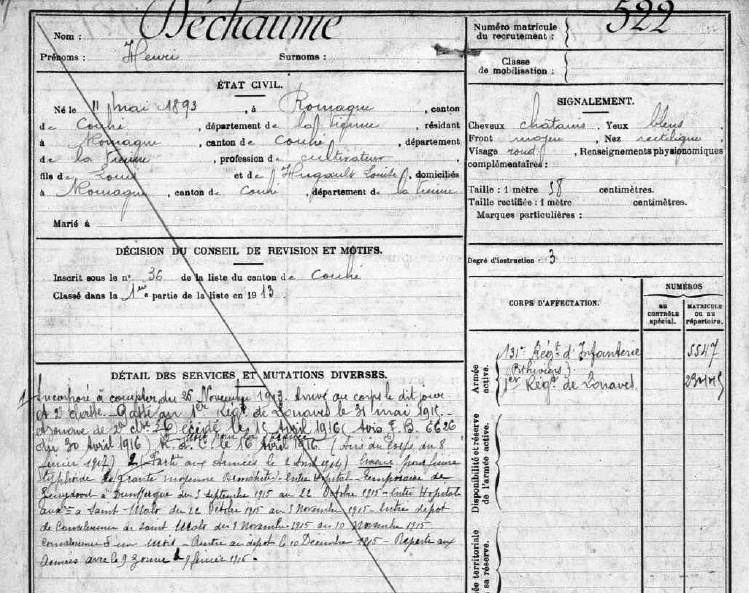 Nom : Déchaume
Prénoms : Henri Surnoms :
Numéro matricule du recrutement : 522
Classe de mobilisation :
ÉTAT CIVIL.
Né le 11 mai 1893, à Romagne, canton
de Couhé, département de la Vienne, résidant
à Romagne, canton de Couhé, département
de la Vienne, profession de cultivateur,
fils de Louis et de Hugault, domiciliés
à Romagne, canton de Couhé, département de la Vienne
Marié à
SIGNALEMENT.
Cheveux chatains Yeux bleus
Front moyen Nez rectiligne
Visage rond, Renseignements physionomiques
complémentaires :
Taille : 1 mètre 58 centimètres.
Taille rectifiée : 1 mètre centimètres.
Marques particulières :
DÉCISION DU CONSEIL DE REVISION ET MOTIFS.
Inscrit sous le n° 36 de la liste du canton de Couhé
Classé dans la 1re partie de la liste en 1913.
Degré d'instruction : 3
CORPS D'AFFECTATION.
NUMÉROS
AU CONTRÔLE spécial.
MATRICULE OU AU répertoire.
Armée active.
131e Régt d'Infanterie 5547
(Pithiviers)
1er Régt de Zouaves
Disponibilité et réserve de l'armée active.
Armée territoriale et sa réserve.
DÉTAIL DES SERVICES ET MUTATIONS DIVERSES.
Incorporé à compter du 26 Novembre 1913. Arrivé au corps le dit jour
et 2e classe. Passé au 1er Régt de Zouaves le 31 mai 1915.
Zouave de 2e cl. Décédé le 15 Avril 1916 (Avis F.B. 6626
du 30 Avril 1916) R.d.C. le 16 Avril 1916. (Avis du Corps du 8
février 1917) Parti aux Armées le 2 Evacué pour fièvre
typhoïde de gravité moyenne Entré Hôpital Temporaire de
à Dunkerque du 3 septembre 1915 au 22 Octobre 1915 - Entré Hopital
à Saint-Malo du 22 Octobre 1915 au 3 Novembre 1915 - Entré depot
de Convalescence de Saint Malo du 3 Novembre 1915 au 10 Novembre 1915
Convalescence d'un mois - Rentré au dépôt le 10 Decembre 1915 - Reparti aux
Armées avec le 9 Zouave le 9 février 1916.